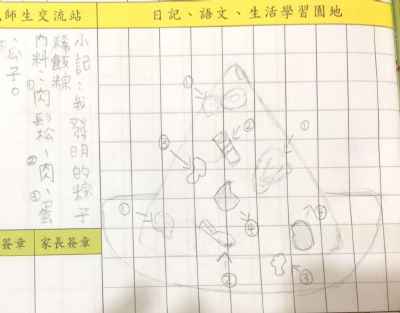 師生交流站
日記、語文、生活學習園地
小記:我發明的粽子
稀飯粽
內料:①肉鬆、②肉、③蛋
、瓜子。
①
②
①
③
①
④
②
③
簽章
家長簽章